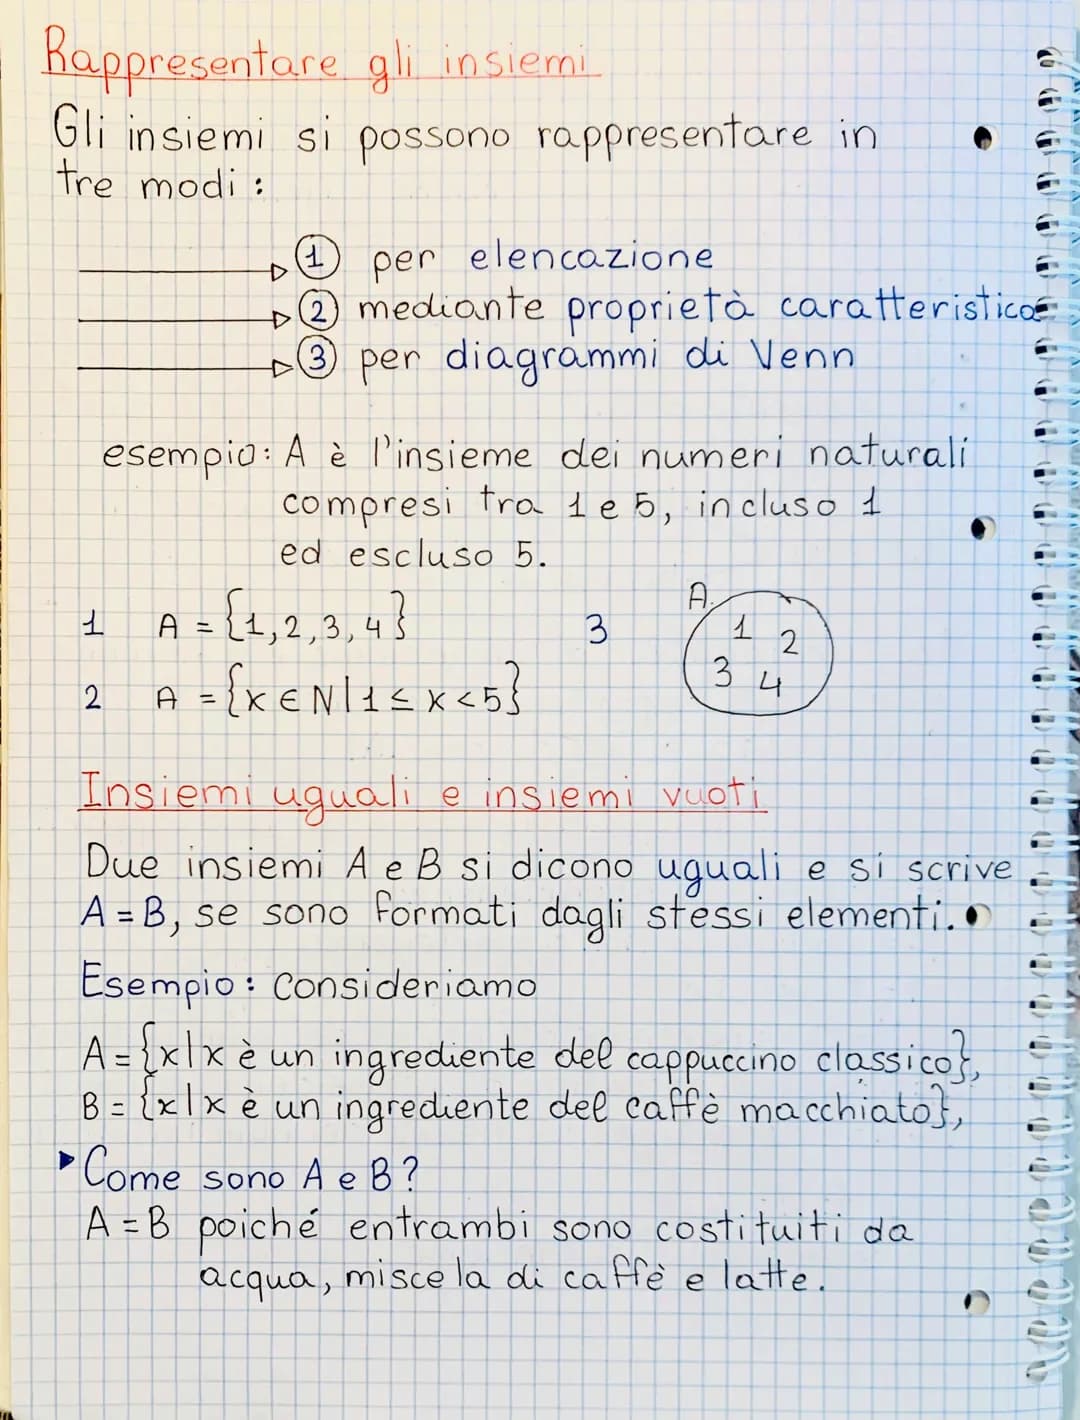 Rappresentare gli insiemi
Gli insiemi si possono rappresentare in
tre modi:
1 per elencazione
2 mediante proprietà caratteristica
3 per diagrammi di Venn
esempio: A è l'insieme dei numeri naturali
compresi tra 1 e 5, incluso 1
ed escluso 5.
1 A = {1,2,3,4}
3
A
1 2
3 4
2 A = {x ∈ N | 1 ≤ x < 5}
Insiemi uguali e insiemi vuoti
Due insiemi A e B si dicono uguali e si scrive
A = B, se sono formati dagli stessi elementi.
Esempio: Consideriamo
A = {x | x è un ingrediente del cappuccino classico},
B = {x | x è un ingrediente del caffè macchiato},
Come sono A e B?
A = B poiché entrambi sono costituiti da
acqua, miscela di caffè e latte.